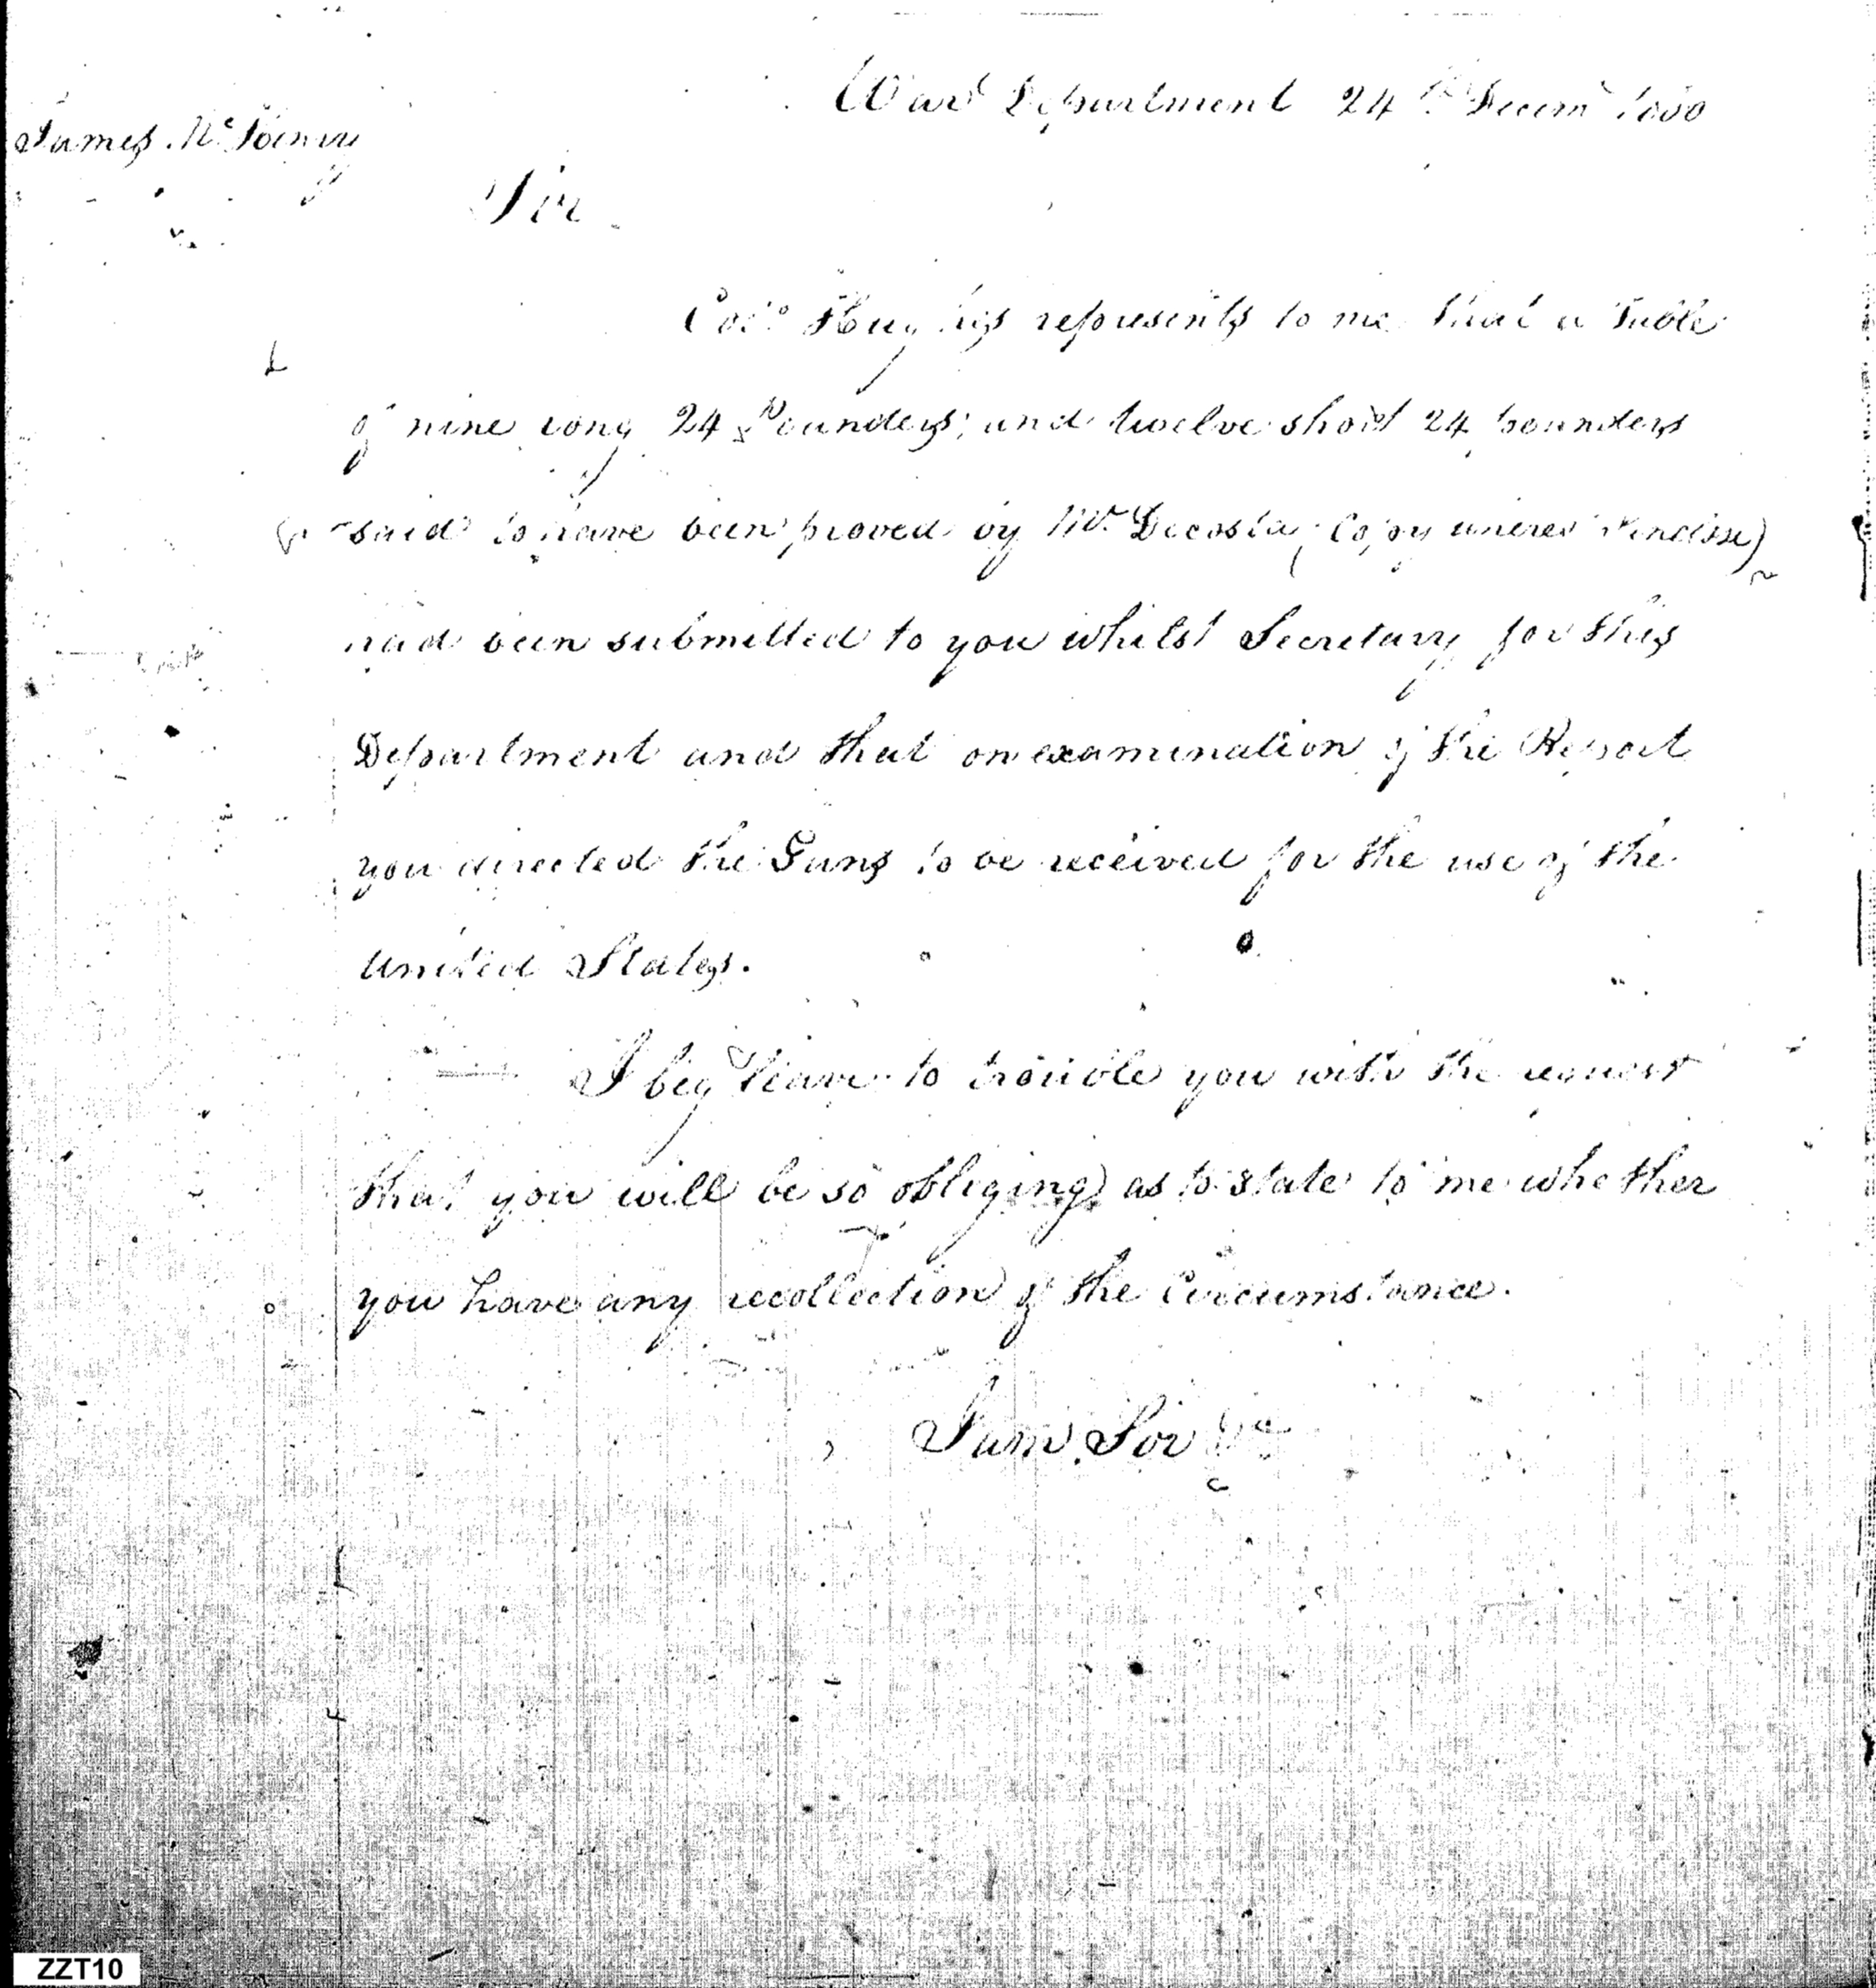 War Department 24th Decemr 1800
James McHenry
Sir
Colo Hughes represents to me that a Table
of nine long 24 Pounders; and twelve short 24 pounders
said to have been proved by Mr. Decosta (Copy whereof I enclose)
had been submitted to you whilst Secretary for this
Department and that on examination of the Report
you directed the Guns to be received for the use of the
United States.
I beg leave to trouble you with the request
that you will be so obliging as to state to me whether
you have any recollection of the Circumstance.
I am Sir &c
ZZT10